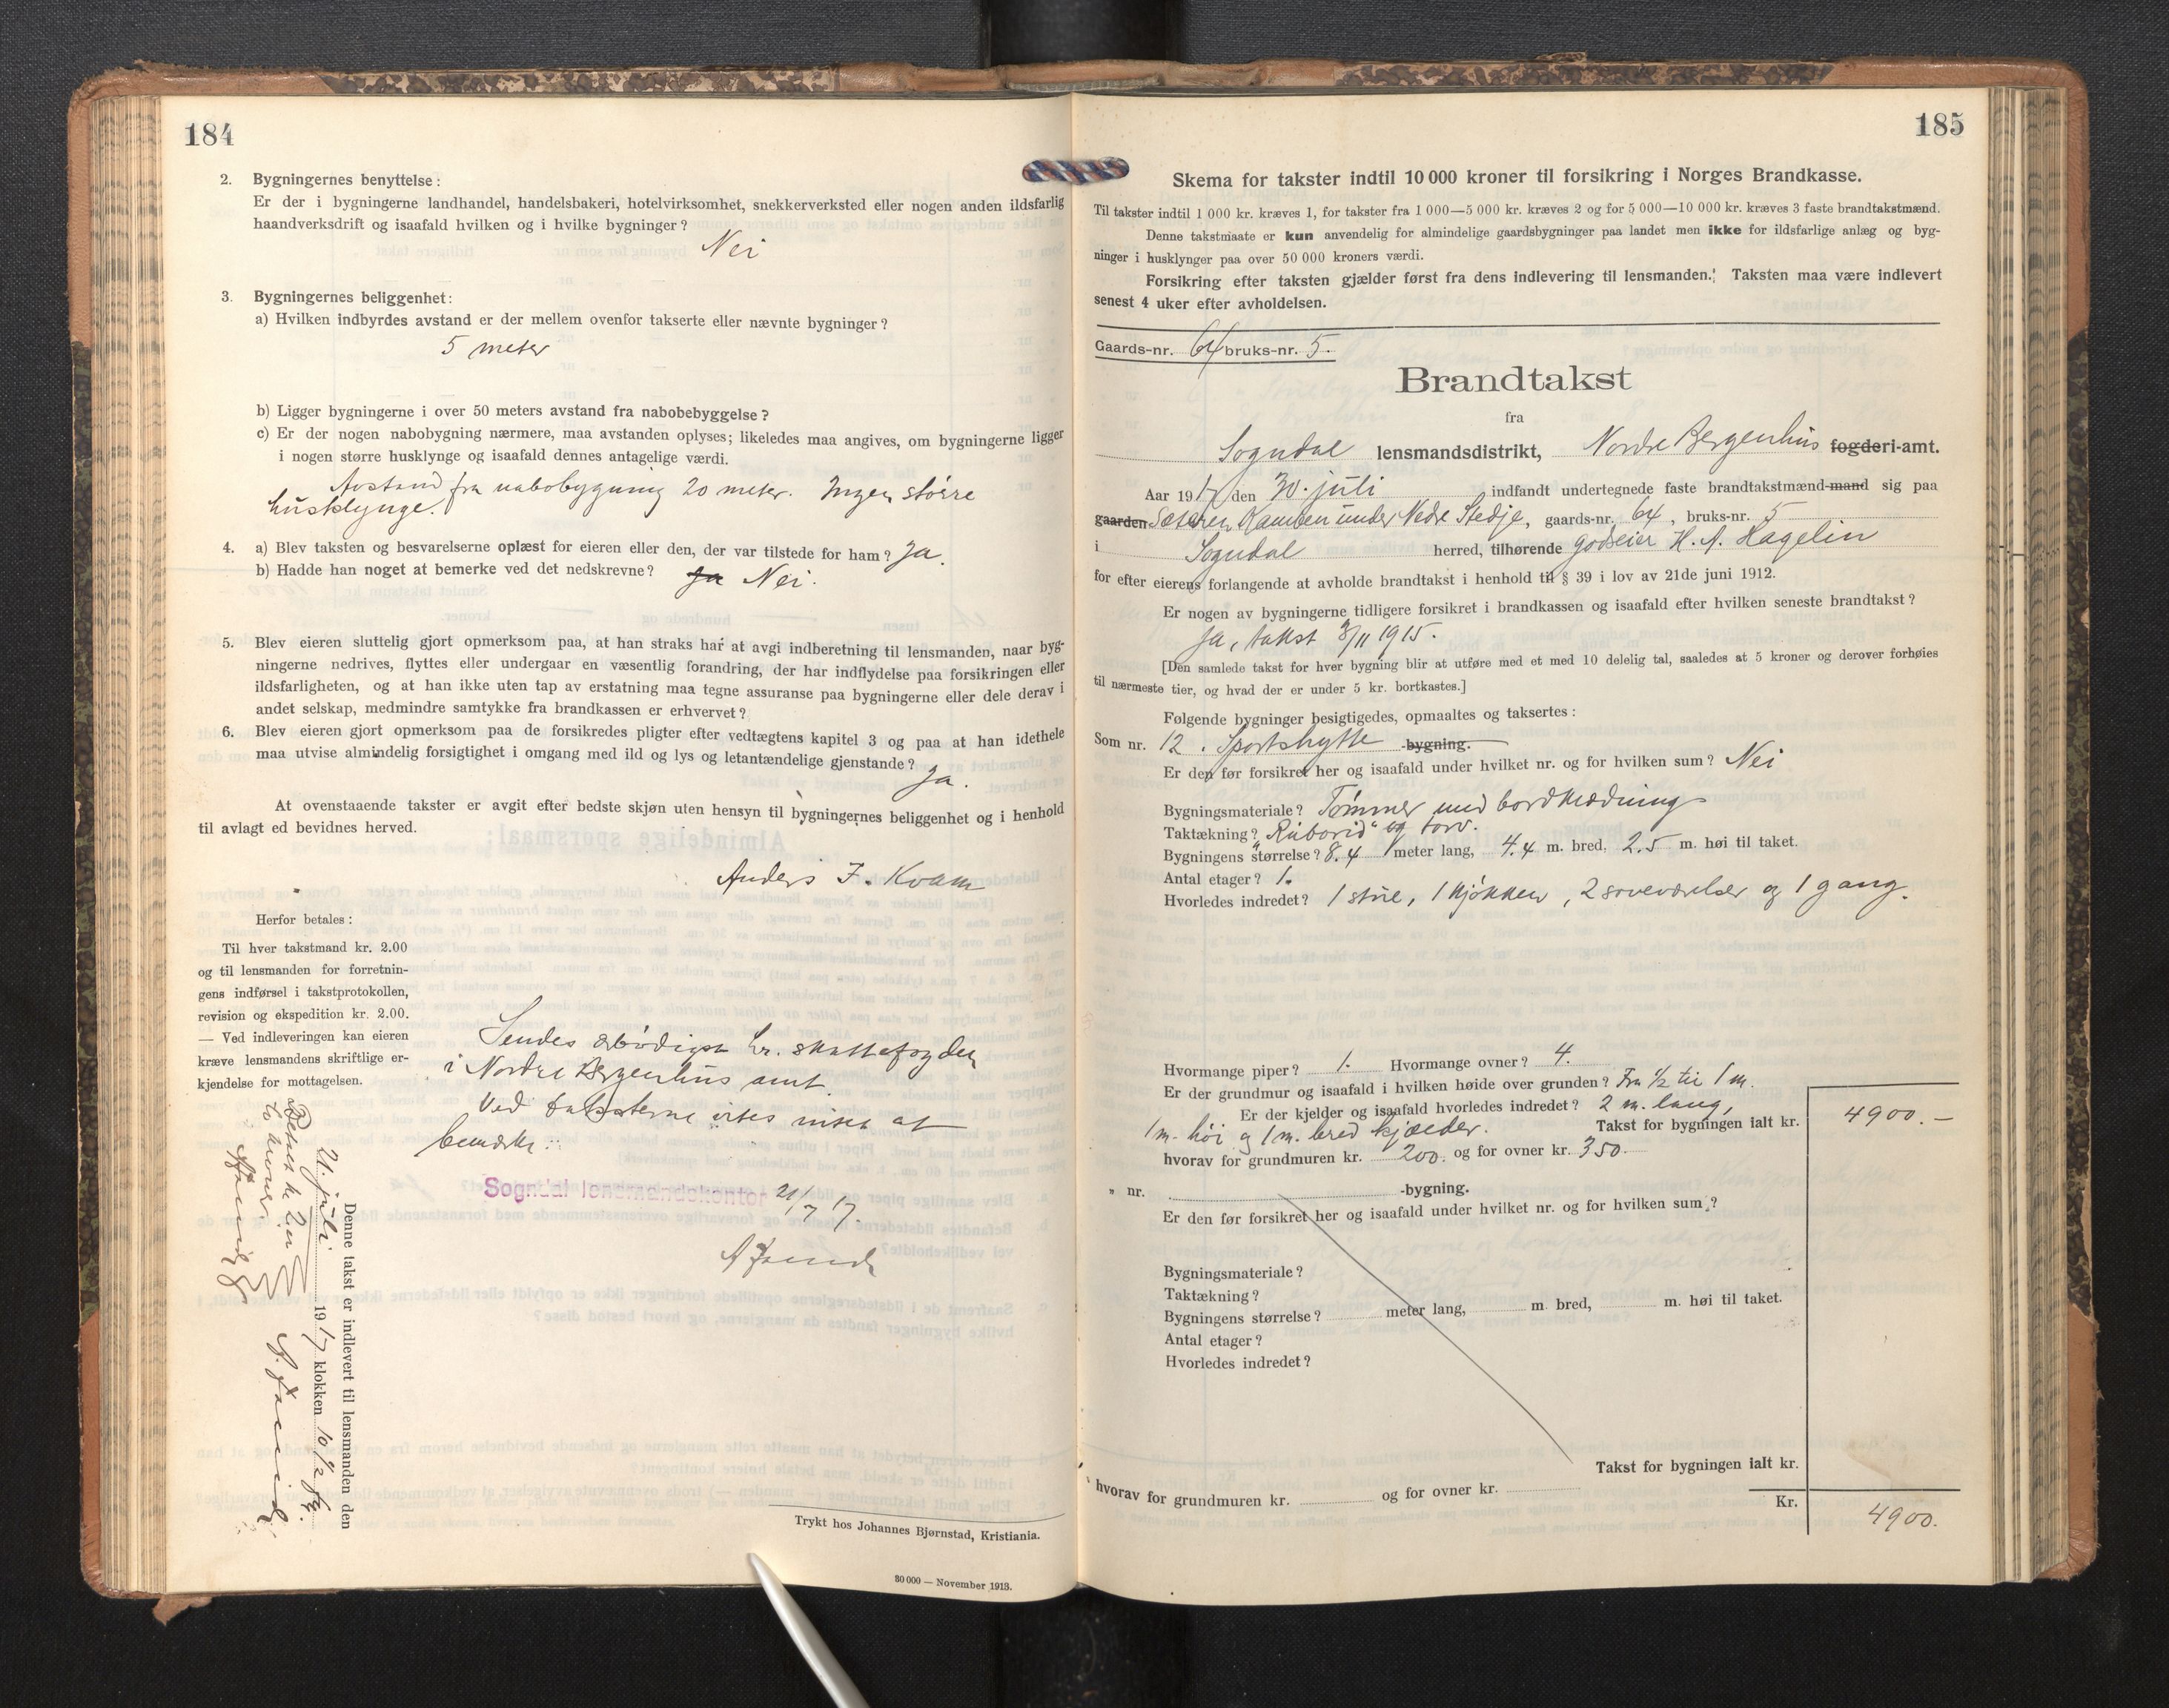 184
2. Bygningernes benyttelse:
Er der i bygningerne landhandel, handelsbakeri, hotelvirksomhet, snekkerverksted eller nogen anden ildsfarlig
haandverksdrift og isaafald hvilken og i hvilke bygninger?
Nei
3. Bygningernes beliggenhet:
a) Hvilken indbyrdes avstand er der mellem ovenfor takserte eller nævnte bygninger?
5 meter
b) Ligger bygningerne i over 50 meters avstand fra nabobebyggelse?
c) Er der nogen nabobygning nærmere, maa avstanden oplyses; likeledes maa angives, om bygningerne ligger
i nogen større husklynge og isaafald dennes antagelige værdi.
Avstand fra nabobygning 20 meter. Ingen større
husklynge.
4. a) Blev taksten og besvarelserne oplæst for eieren eller den, der var tilstede for ham? Ja.
b) Hadde han noget at bemerke ved det nedskrevne? Ja Nei.
5. Blev eieren sluttelig gjort opmerksom paa, at han straks har at avgi indberetning til lensmanden, naar byg-
ningerne nedrives, flyttes eller undergaar en væsentlig forandring, der har indflydelse paa forsikringen eller
ildsfarligheten, og at han ikke uten tap av erstatning maa tegne assuranse paa bygningerne eller dele derav i
andet selskap, medmindre samtykke fra brandkassen er erhvervet?
6. Blev eieren gjort opmerksom paa de forsikredes pligter efter vedtægtens kapitel 3 og paa at han idethele
maa utvise almindelig forsigtighet i omgang med ild og lys og letantændelige gjenstande?
Ja.
At ovenstaaende takster er avgit efter bedste skjøn uten hensyn til bygningernes beliggenhet og i henhold
til avlagt ed bevidnes herved.
Anders J. Kvam
Herfor betales:
Til hver takstmand kr. 2.00
og til lensmanden for forretnin-
gens indførsel i takstprotokollen,
revision og ekspedition kr. 2.00.
— Ved indleveringen kan eieren
kræve lensmandens skriftlige er-
kjendelse for mottagelsen.
Sendes ærbødigst hr. skattefogden
i Nordre Bergenhus amt.
Ved taksterne vites intet at
bemerke.
Sogndal lensmandskontor 21/7 17.
Denne takst er indlevert til lensmanden den
21. juli 1917 klokken 10 1/2 fm.
Betalt kr. 2.
to kroner
Trykt hos Johannes Bjørnstad, Kristiania.
30 000 — November 1913.
185
Skema for takster indtil 10 000 kroner til forsikring i Norges Brandkasse.
Til takster indtil 1 000 kr. kræves 1, for takster fra 1 000—5 000 kr. kræves 2 og for 5 000—10 000 kr. kræves 3 faste brandtakstmænd.
Denne takstmaate er kun anvendelig for almindelige gaardsbygninger paa landet men ikke for ildsfarlige anlæg og byg-
ninger i husklynger paa over 50 000 kroners værdi.
Forsikring efter taksten gjælder først fra dens indlevering til lensmanden. Taksten maa være indlevert
senest 4 uker efter avholdelsen.
Gaards-nr. 64 bruks-nr. 5.
Brandtakst
fra
Sogndal lensmandsdistrikt, Nordre Bergenhus fogderi-amt.
Aar 1917 den 30. juli indfandt undertegnede faste brandtakstmænd-mand sig paa
gaarden Sæteren Kamben under Nedre Stedje, gaards-nr. 64, bruks-nr. 5
i Sogndal herred, tilhørende godseier H. A. Hagelin
for efter eierens forlangende at avholde brandtakst i henhold til § 39 i lov av 21de juni 1912.
Er nogen av bygningerne tidligere forsikret i brandkassen og isaafald efter hvilken seneste brandtakst?
Ja, takst 3/11 1915.
[Den samlede takst for hver bygning blir at utføre med et med 10 delelig tal, saaledes at 5 kroner og derover forhøies
til nærmeste tier, og hvad der er under 5 kr. bortkastes.]
Følgende bygninger besigtigedes, opmaaltes og taksertes:
Som nr. 12. Sportshytte -bygning.
Er den før forsikret her og isaafald under hvilket nr. og for hvilken sum? Nei
Bygningsmateriale? Tømmer med bordklædning
Taktækning? „Ruborid“ og torv.
Bygningens størrelse? 8.4 meter lang, 4.4 m. bred, 2.5 m. høi til taket.
Antal etager? 1.
Hvorledes indredet? 1 stue, 1 kjøkken, 2 soveværelser og 1 gang.
Hvormange piper? 1. Hvormange ovner? 4.
Er der grundmur og isaafald i hvilken høide over grunden? Fra 1/2 til 1 m.
Er der kjelder og isaafald hvorledes indredet? 2 m. lang,
1 m. høi og 1 m. bred kjælder. Takst for bygningen ialt kr. 4900.—
hvorav for grundmuren kr. 200. og for ovner kr. 350.
" nr. -bygning.
Er den før forsikret her og isaafald under hvilket nr. og for hvilken sum?
Bygningsmateriale?
Taktækning?
Bygningens størrelse? meter lang, m. bred, m. høi til taket.
Antal etager?
Hvorledes indredet?
Takst for bygningen ialt kr.
hvorav for grundmuren kr. og for ovner kr.
Kr. 4900.